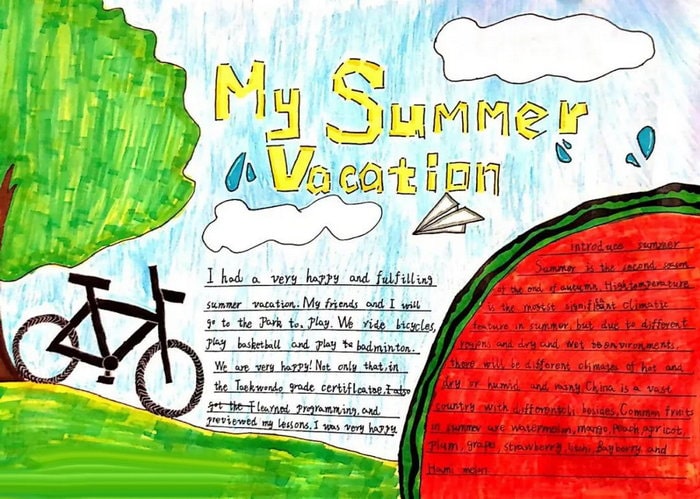 My Summer
Vacation
I had a very happy and fulfilling
summer vacation. My friends and I will
go to the Park to. Play. We ride bicycles,
play basketball and play to badminton.
We are very happy! Not only that, in
the Taekwondo grade certificates, I also
got the I learned programming, and
previewed my lessons. I was very happy
introduce summer
Summer is the second
at the end of autumn. High temperature
is the most significant climatic
feature in summer, but due to different
regions and dry and wet environments,
there will be different climates of hot and
dry or humid and many. China is a vast
country with Common fruits
in summer are watermelon, mango, peach, apricot,
plum, grape, strawberry, Bayberry and
Hami melon